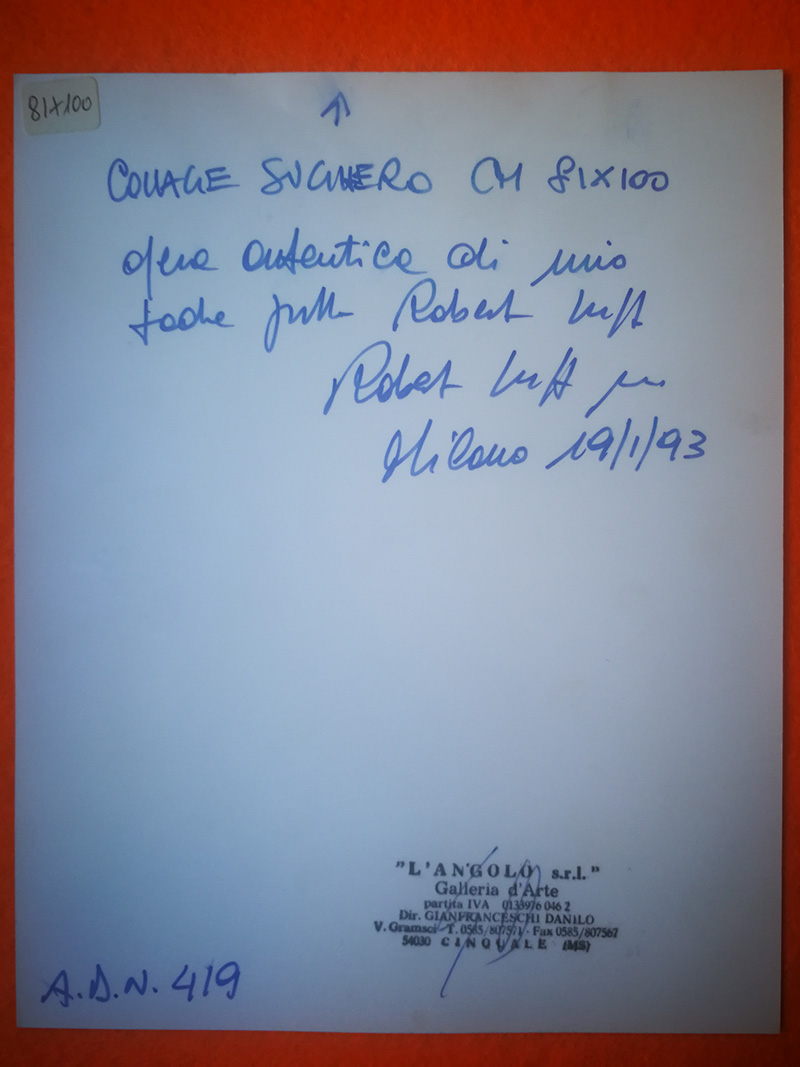 81X100
COLLAGE SUGHERO CM 81X100
opera autentica di mio
padre Robert
Robert
Milano 19/1/93
"L'ANGOLO s.r.l."
Galleria d'Arte
partita IVA 046 2
Dir. GIANFRANCESCHI DANILO
V. Gramsci - T. 0585/807571 - Fax 0585/807567
54030 CINQUALE (MS)
A.D.N. 419